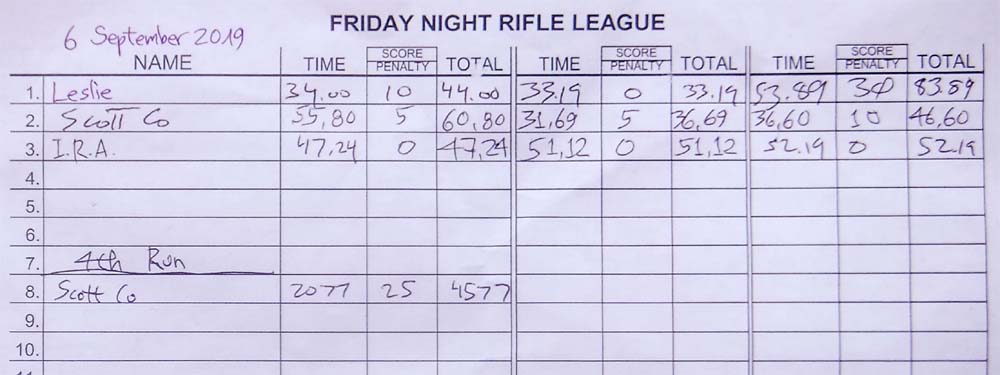 FRIDAY NIGHT RIFLE LEAGUE
6 September 2019
NAME TIME SCORE PENALTY TOTAL TIME SCORE PENALTY TOTAL TIME SCORE PENALTY TOTAL
1. Leslie 34.00 10 44.00 33.19 0 33.19 53.89 30 83.89
2. Scott Co 55,80 5 60,80 31,69 5 36,69 36,60 10 46,60
3. I.R.A. 47,24 0 47,24 51,12 0 51,12 52.19 0 52.19
4.
5.
6.
7. 4th Run
8. Scott Co 2077 25 4577
9.
10.